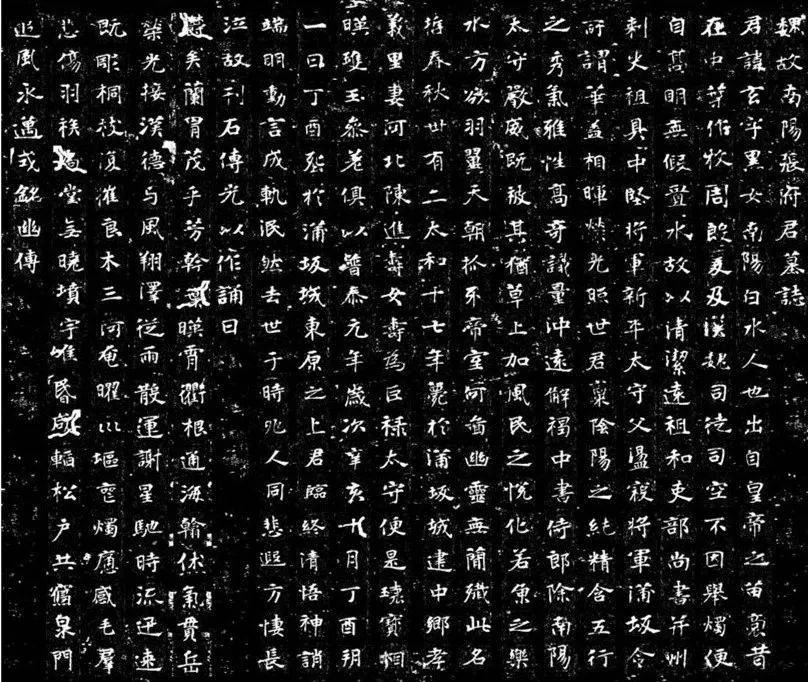 魏故南陽張府君墓誌
君諱玄字黑女南陽白水人也出自皇帝之苗裔昔
在中葉作牧周殷爰及漢魏司徒司空不因舉燭便
自高明無假置水故以清潔遠祖和吏部尚書并州
刾史祖具中堅將軍新平太守父盪寇將軍蒲坂令
所謂華蓋相暉榮光照世君稟陰陽之純精含五行
之秀氣雅性高奇識量沖遠解褐中書侍郎除南陽
太守嚴威既被其猶草上加風民之悅化若魚之樂
水方欲羽翼天朝抓牙帝室何啚幽靈無簡殲此名
喆春秋卅有二太和十七年薨於蒲坂城建中鄉孝
義里妻河北陳進壽女壽為巨祿太守便是瓌寶相
暎瓊玉參差俱以普泰元年歲次辛亥十月丁酉朔
一日丁酉葬於蒲坂城東原之上君臨終清悟神誚
端明動言成軌泯然去世于時兆人同悲遐方悽長
泣故刊石傳光以作誦曰
鬱矣蘭胄茂乎芳幹葉暎霄衢根通海翰休氣貫岳
榮光接漢德与風翔澤從雨散運謝星馳時流迅速
既彫桐枝復摧良木三河奄曜巛塸堙燭痛感毛群
悲傷羽族扃堂無曉墳宇唯昏咸韜松戶共寢泉門
追風永邁式銘幽傳